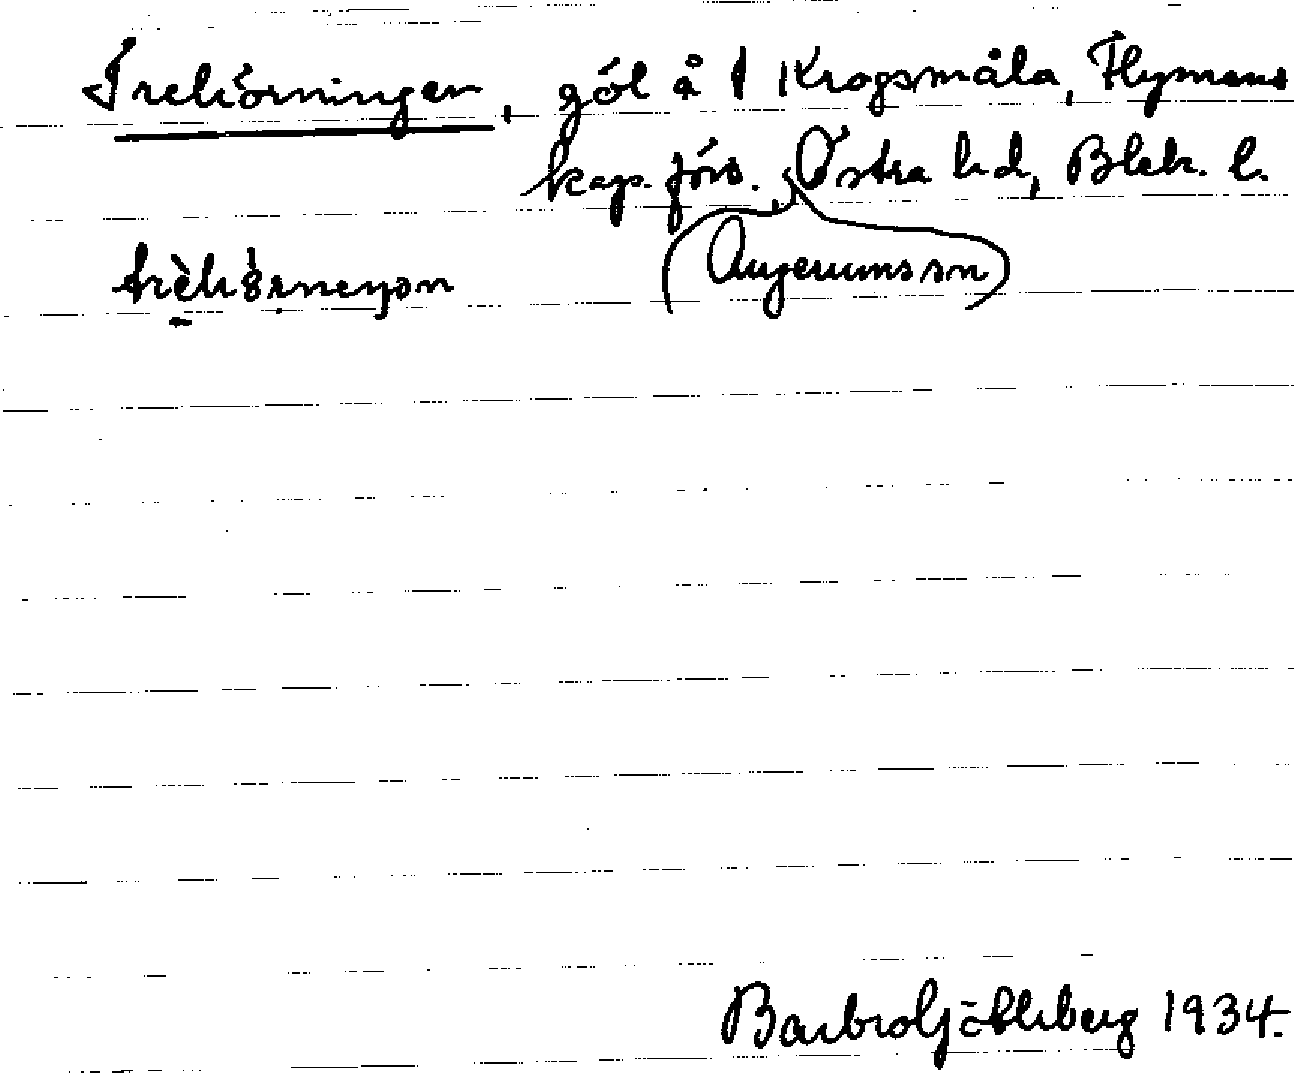 Trehörningen, göl å 1 Krogsmåla, Flymens
kap. förs. Östra hd, Blek. l.
(Augerums sn)
trèhörneŋən
Barbro Söderberg 1934.